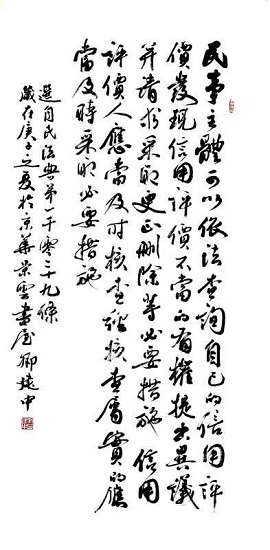 民事主體可以依法查詢自己的信用評
價發現信用評價不當的有權提出異議
并請求采取更正刪除等必要措施信用
評價人應當及时核查經核查屬實的應
當及時采取必要措施
選自民法典第一千零二十九條
歲在庚子之夏於京華景雲書屋鄉遠中